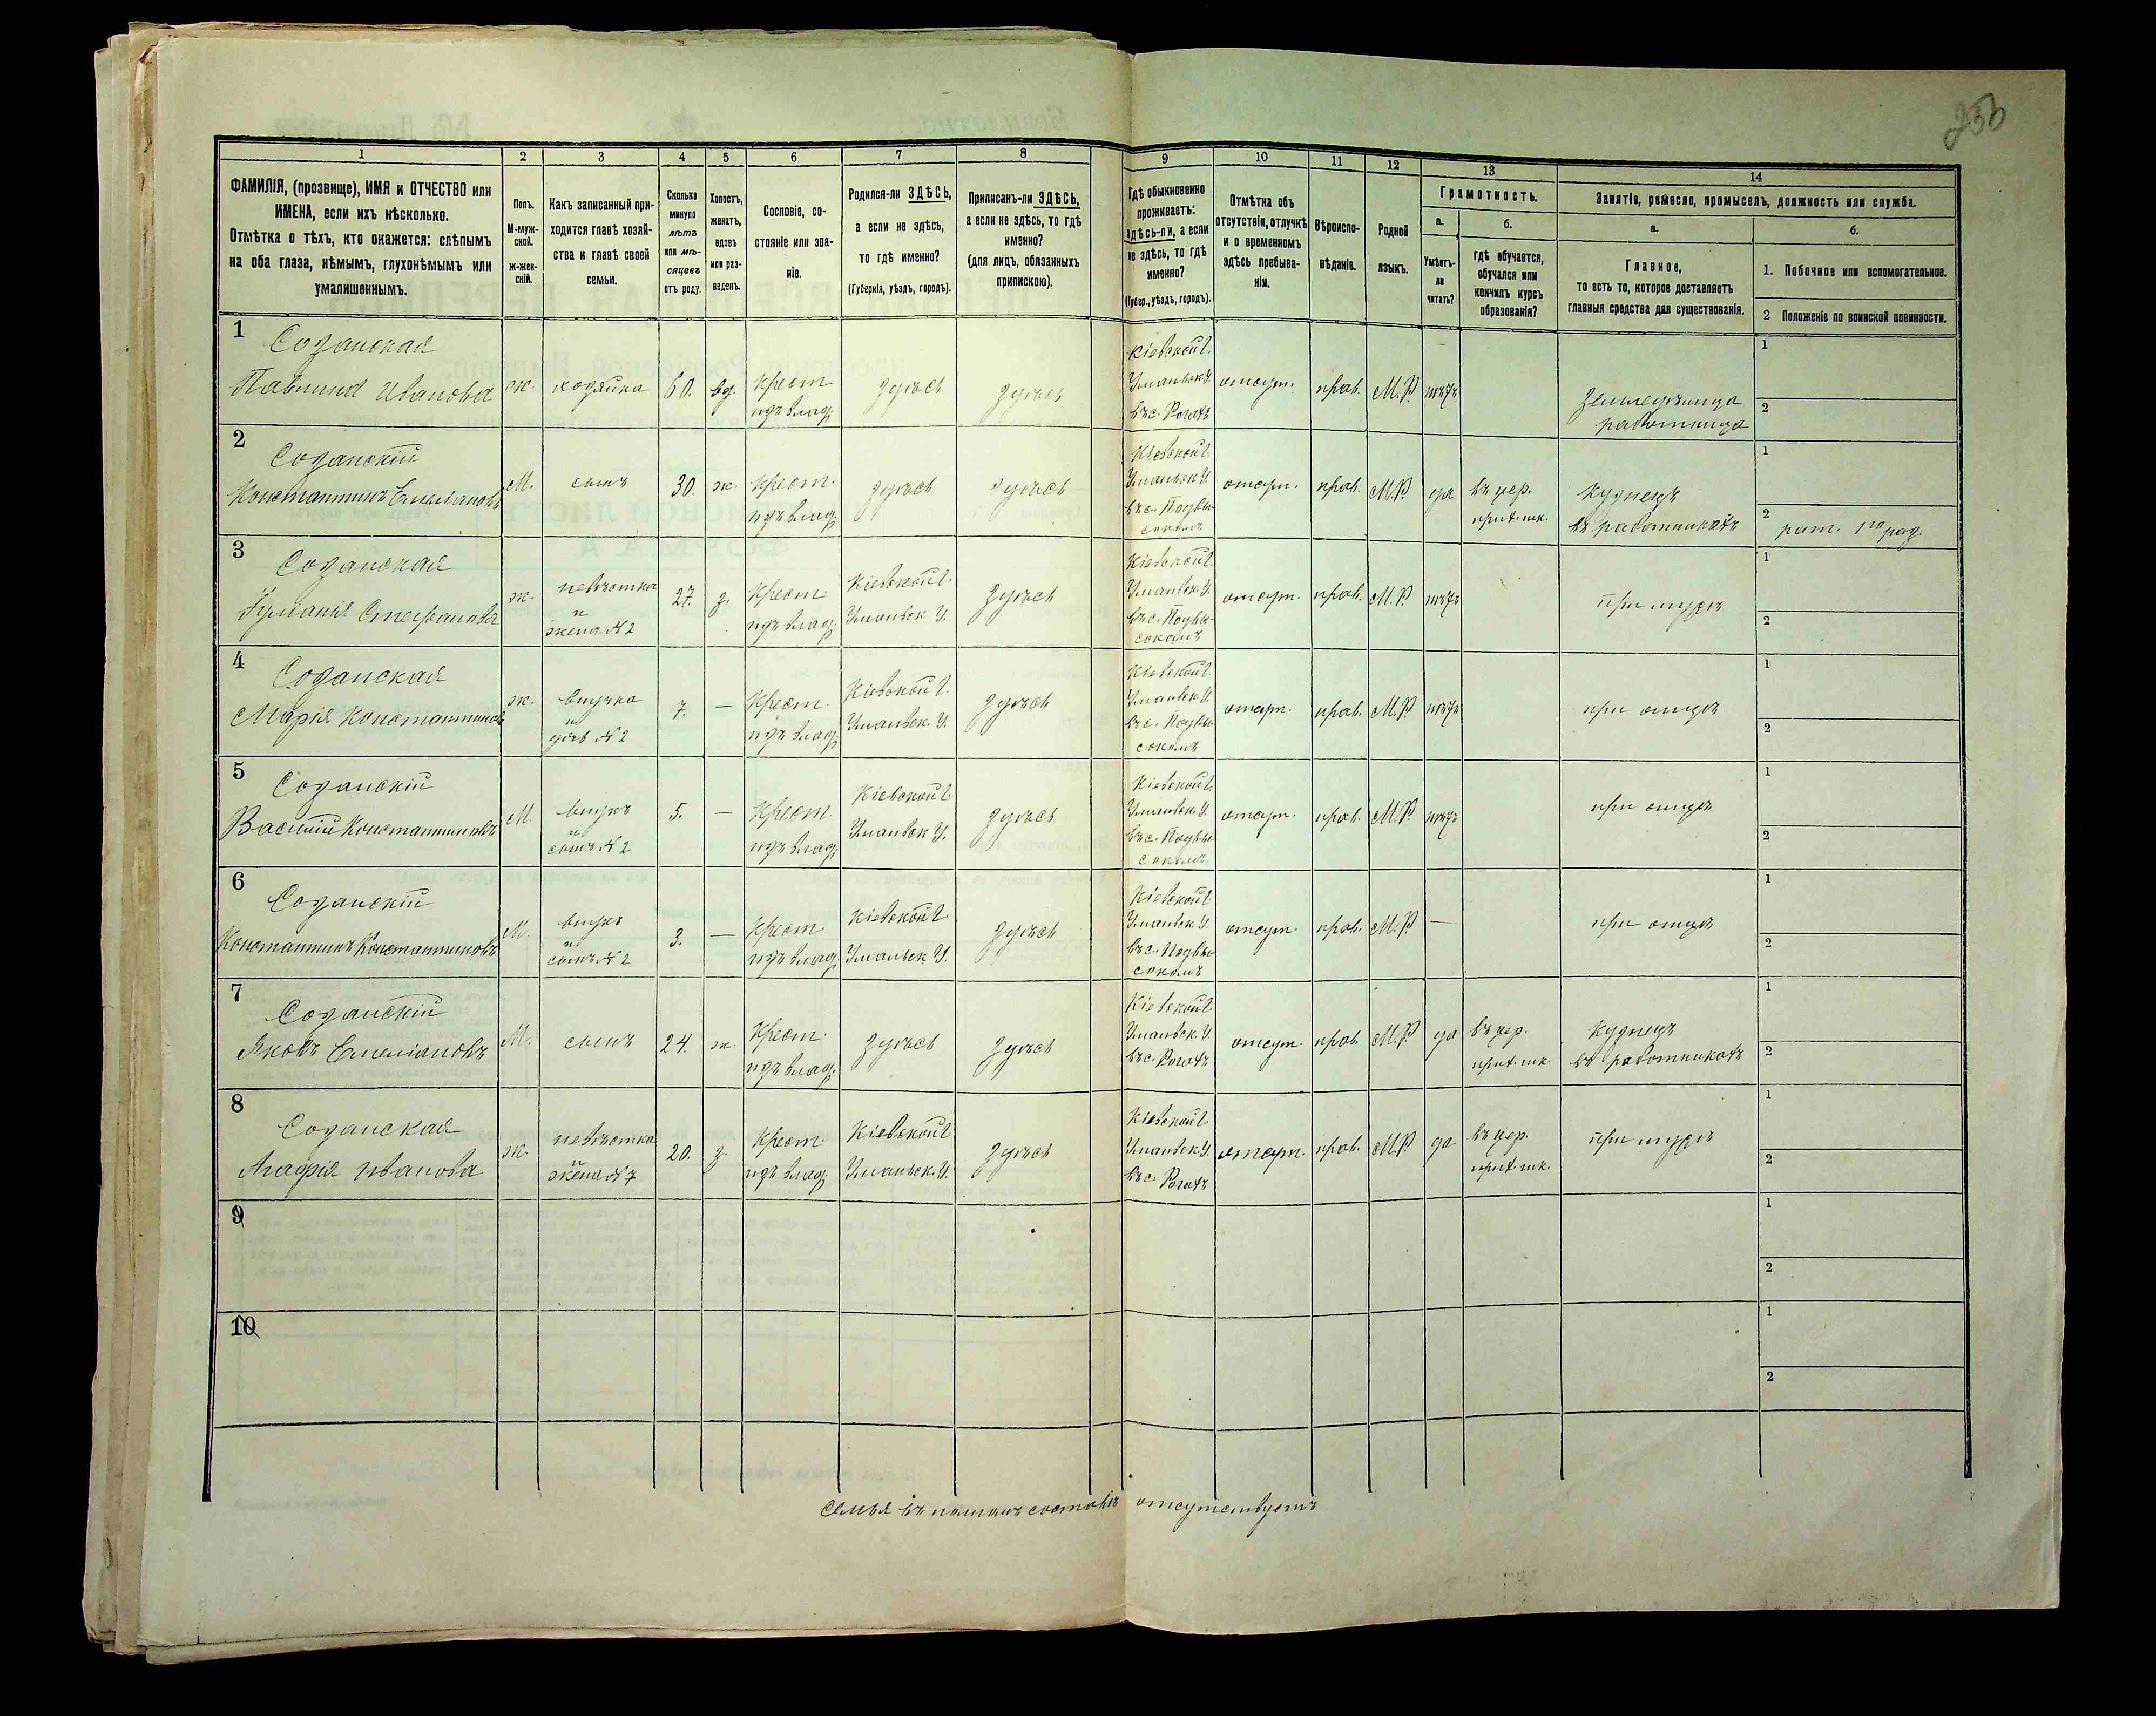 256
1 2 3 4 5 6 7 8 9 10 11 12 13 14
ФАМИЛІЯ, (прозвище), ИМЯ и ОТЧЕСТВО или
ИМЕНА, если ихъ нѣсколько.
Отмѣтка о тѣхъ, кто окажется: слѣпымъ
на оба глаза, нѣмымъ, глухонѣмымъ или
умалишеннымъ.
Полъ.
М-муж-
ской.
Ж-жен-
скій.
Какъ записанный при-
ходится главѣ хозяй-
ства и главѣ своей
семьи.
Сколько
минуло
лѣтъ
или мѣ-
сяцевъ
отъ роду.
Холостъ,
женатъ,
вдовъ
или раз-
веденъ.
Сословіе, со-
стояніе или зва-
ніе.
Родился-ли ЗДѢСЬ,
а если не здѣсь,
то гдѣ именно?
(Губернія, уѣздъ, городъ).
Приписанъ-ли ЗДѢСЬ,
а если не здѣсь, то гдѣ
именно?
(для лицъ, обязанныхъ
припискою).
Гдѣ обыкновенно
проживаетъ:
здѣсь-ли, а если
не здѣсь, то гдѣ
именно?
(Губер., уѣздъ, городъ).
Отмѣтка объ
отсутствіи, отлучкѣ
и о временномъ
здѣсь пребыва-
ніи.
Вѣроиспо-
вѣданіе.
Родной
языкъ.
Грамотность.
а.
Умѣетъ-
ли
читать?
б.
гдѣ обучается,
обучался или
кончилъ курсъ
образованія?
Занятіе, ремесло, промыселъ, должность или служба.
а.
Главное,
то есть то, которое доставляетъ
главныя средства для существованія.
б.
1. Побочное или вспомогательное.
2 Положеніе по воинской повинности.
1
Созанская
Павлина Иванова
ж.
хозяйка
60.
вд.
Крест.
изъ влад.
здѣсь
здѣсь
Кіевской г.
Уманьск. у.
въ с. Рогахъ
отсут.
прав.
М.Р.
нѣтъ
работница
1
2
2
Созанскій
Константинъ Емеліановъ
М.
сынъ
30.
ж.
Крест.
изъ влад.
здѣсь
здѣсь
Кіевской г.
Уманьск. у.
въ с. Подвы-
сокомъ
отсут.
прав.
М.Р.
да
въ цер.
прих. шк.
Кузнецъ
въ работникахъ
1
2
рат. 1го раз.
3
Созанская
Стефанова
ж.
невѣстка
и
жена N 2
27.
з.
Крест.
изъ влад.
Кіевской г.
Уманьск. у.
здѣсь
Кіевской г.
Уманьск. у.
въ с. Подвы-
сокомъ
отсут.
прав.
М.Р.
нѣтъ
при мужѣ
1
2
4
Созанская
Марія Константинова
ж.
внучка
и
дочь N 2
7.
—
Крест.
изъ влад.
Кіевской г.
Уманьск. у.
здѣсь
Кіевской г.
Уманьск. у.
въ с. Подвы-
сокомъ
отсут.
прав.
М.Р.
нѣтъ
при отцѣ
1
2
5
Созанскій
Василій Константиновъ
М.
внукъ
и
сынъ N 2
5.
—
Крест.
изъ влад.
Кіевской г.
Уманьск. у.
здѣсь
Кіевской г.
Уманьск. у.
въ с. Подвы-
сокомъ
отсут.
прав.
М.Р.
нѣтъ
при отцѣ
1
2
6
Созанскій
Константинъ Константиновъ
М.
внукъ
и
сынъ N 2
3.
—
Крест.
изъ влад.
Кіевской г.
Уманьск. у.
здѣсь
Кіевской г.
Уманьск. у.
въ с. Подвы-
сокомъ
отсут.
прав.
М.Р.
—
при отцѣ
1
2
7
Созанскій
Яковъ Емеліановъ
М.
сынъ
24.
ж.
Крест.
изъ влад.
здѣсь
здѣсь
Кіевской г.
Уманьск. у.
въ с. Рогахъ
отсут.
прав.
М.Р.
да
въ цер.
прих. шк.
Кузнецъ
въ работникахъ
1
2
8
Созанская
Агафія Иванова
ж.
невѣстка
и
жена N 7
20.
з.
Крест.
изъ влад.
Кіевской г.
Уманьск. у.
здѣсь
Кіевской г.
Уманьск. у.
въ с. Рогахъ
отсут.
прав.
М.Р.
да
въ цер.
прих. шк.
при мужѣ
1
2
9
1
2
10
1
2
Семья въ полномъ составѣ отсутствуетъ